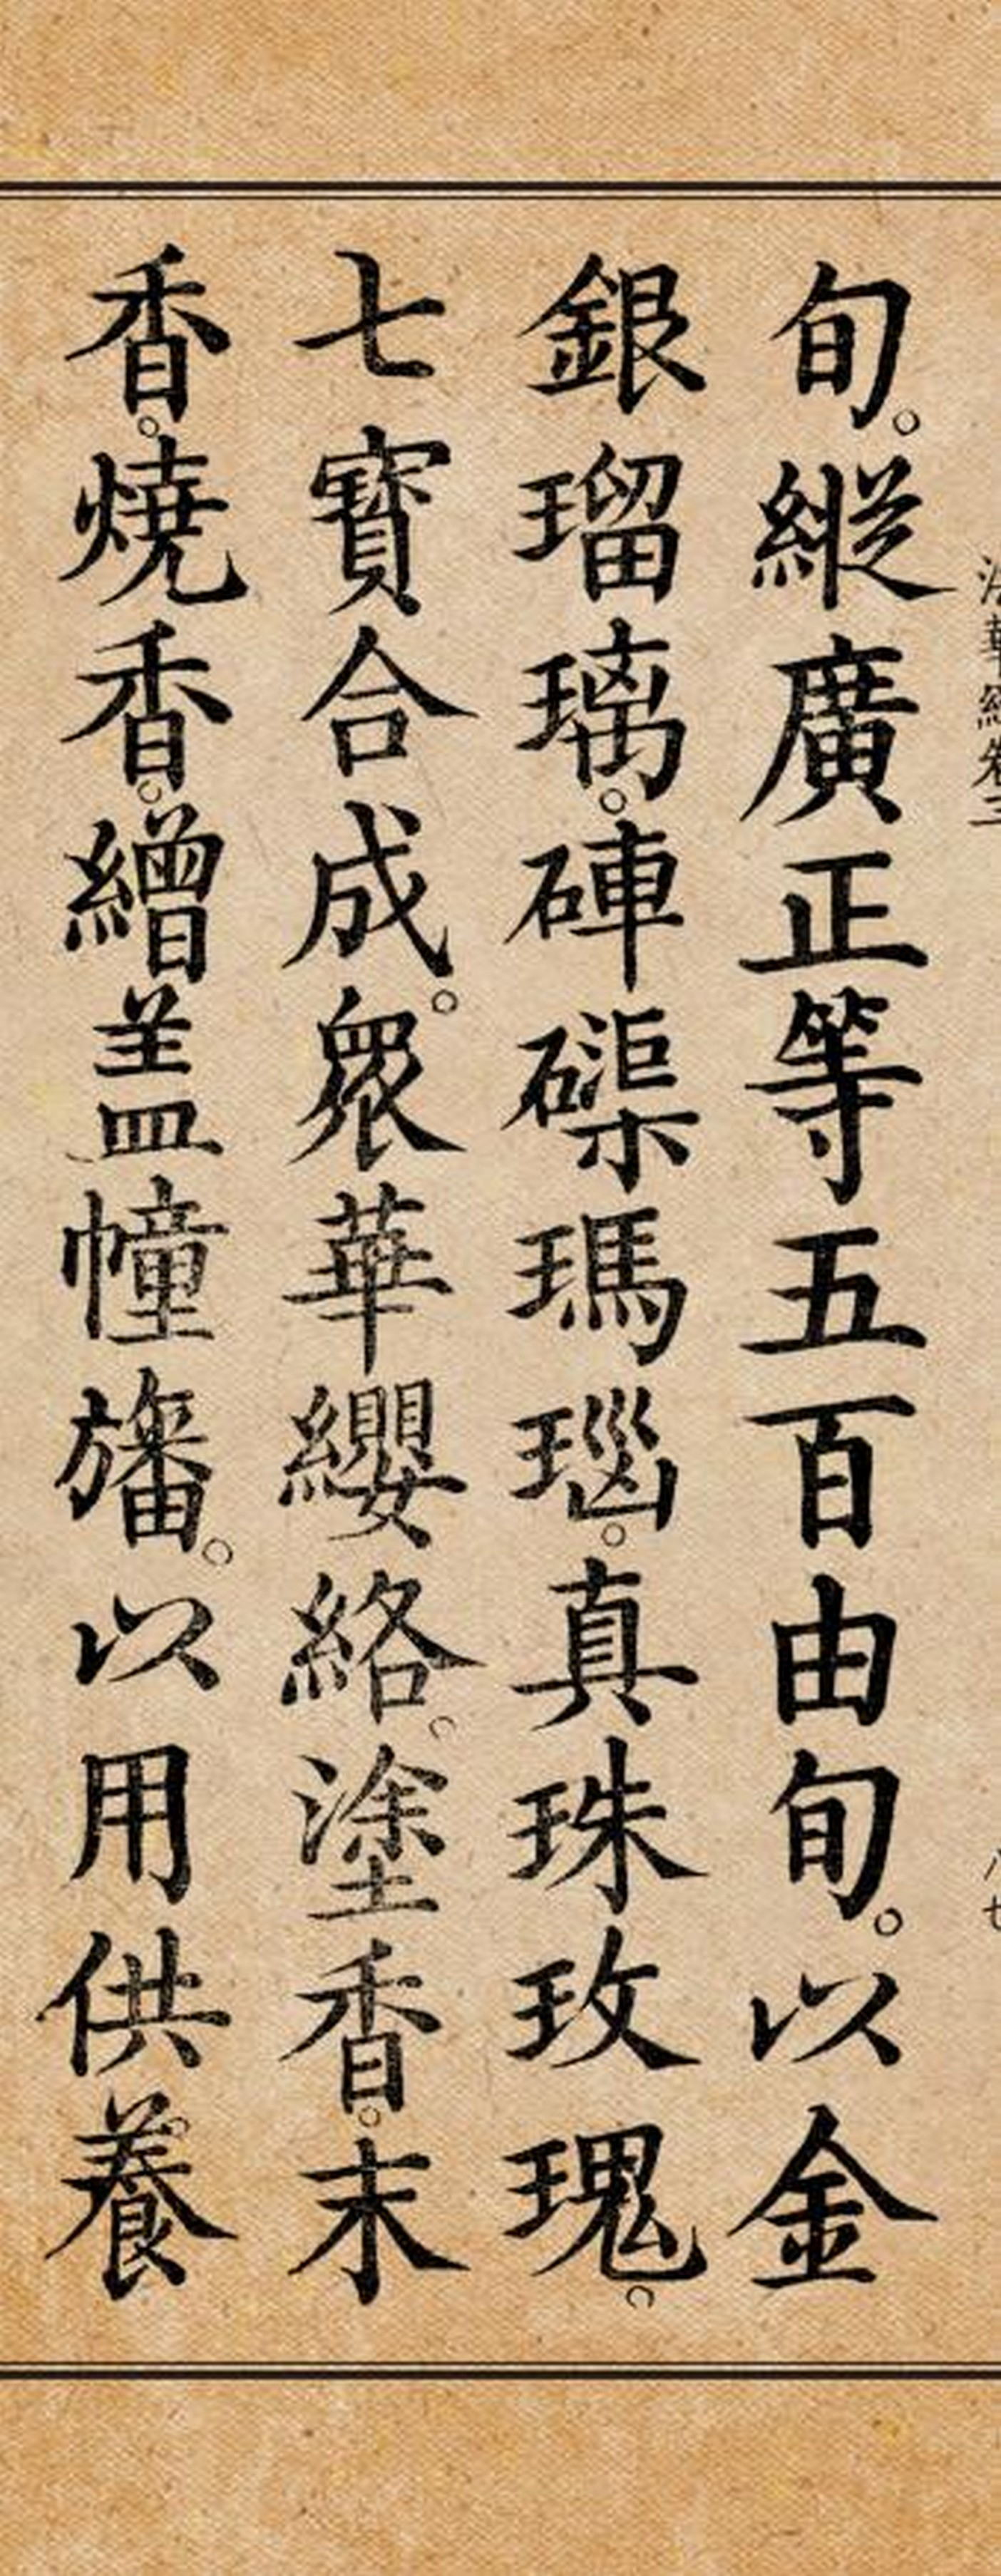 法華經卷三
旬。縱廣正等五百由旬。以金
銀瑠璃。硨磲瑪瑙。真珠玫瑰。
七寶合成。眾華纓絡。塗香。末
香。燒香。繒盖幢旛。以用供養